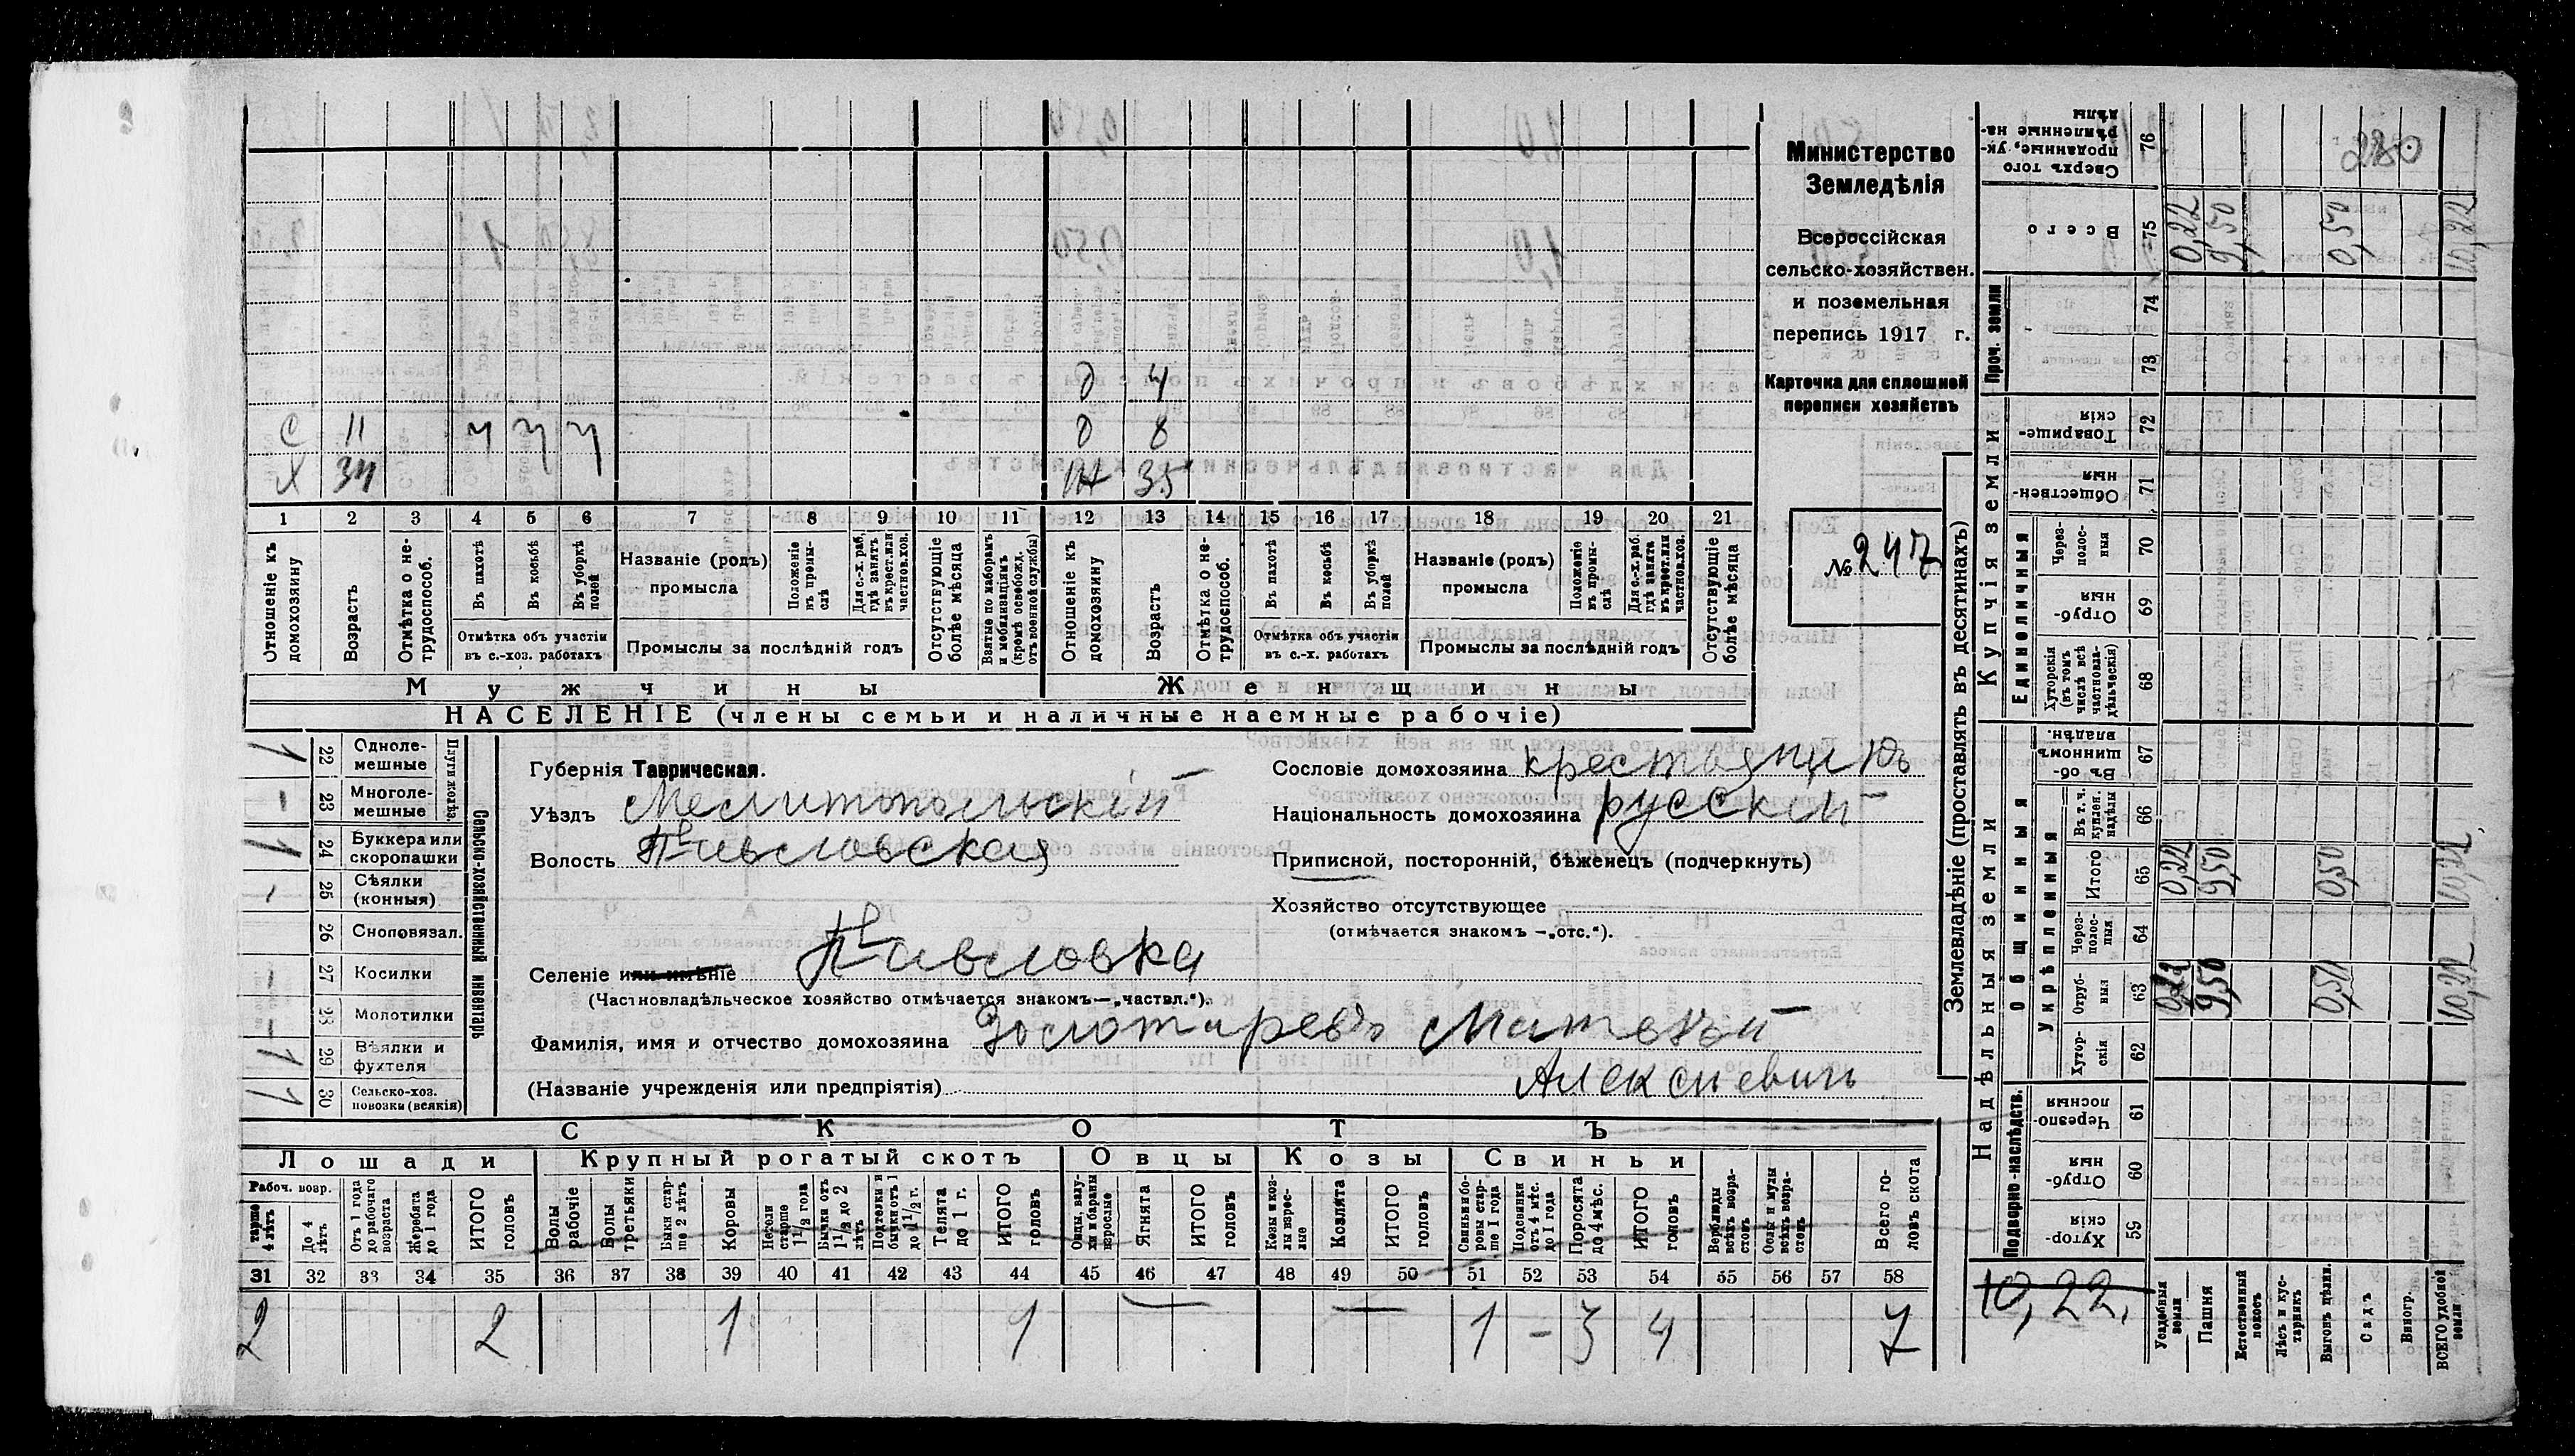 Министерство
Земледѣлія
Всероссійская
сельско-хозяйствен.
и поземельная
перепись 1917 г.
Карточка для сплошной
переписи хозяйствъ
№ 247
280
д 4
с 11 ч ч ч д 8
х 34 ж 35
1 2 3 4 5 6 7 8 9 10 11 12 13 14 15 16 17 18 19 20 21
Отношеніе къ домохозяину
Возрастъ
Отмѣтка о не-трудоспособ.
Въ пахотѣ
Въ косьбѣ
Въ уборкѣ полей
Отмѣтка объ участіи въ с.-хоз. работахъ
Названіе (родъ) промысла
Положеніе въ промы-слѣ
Для с.-х. раб. гдѣ занятъ въ крест. или частнов. хоз.
Промыслы за послѣдній годъ
Отсутствующіе болѣе мѣсяца
Взятые по наборамъ и мобилизаціямъ (кромѣ освобожд. отъ военной службы)
Отношеніе къ домохозяину
Возрастъ
Отмѣтка о не-трудоспособ.
Въ пахотѣ
Въ косьбѣ
Въ уборкѣ полей
Отмѣтка объ участіи въ с.-х. работахъ
Названіе (родъ) промысла
Положеніе въ промы-слѣ
Для с.-х. раб. гдѣ занята въ крест. или частнов. хоз.
Промыслы за послѣдній годъ
Отсутствующіе болѣе мѣсяца
Мужчины Женщины
НАСЕЛЕНІЕ (члены семьи и наличные наемные рабочіе)
Сельско-хозяйственный инвентарь
Плуги желѣз.
1 22 Одноле-мешные
- 23 Многоле-мешные
1 24 Буккера или скоропашки
- 25 Сѣялки (конныя)
26 Сноповязал.
- 27 Косилки
- 28 Молотилки
1 29 Вѣялки и фухтеля
1 30 Сельско-хоз. повозки (всякія)
Губернія Таврическая.
Уѣздъ Мелитопольскій
Волость Павловская
Селеніе или имѣніе Павловка
(Частновладѣльческое хозяйство отмѣчается знакомъ—„частвл.“).
Фамилія, имя и отчество домохозяина Золотаревъ Матвѣй
(Названіе учрежденія или предпріятія) Алексѣевичъ
Сословіе домохозяина крестьянинъ
Національность домохозяина русскій
Приписной, посторонній, бѣженецъ (подчеркнуть)
Хозяйство отсутствующее
(отмѣчается знакомъ —„отс.“).
СКОТЪ
Лошади Крупный рогатый скотъ Овцы Козы Свиньи
Рабоч. возр.
старше 4 лѣтъ
До 4 лѣтъ
Отъ 1 года до рабочаго возраста
Жеребята до 1 года
ИТОГО головъ
Волы рабочіе
Волы третьяки
Быки стар-ше 2 лѣтъ
Коровы
Нетели старше 1 1/2 года
Бычки отъ 1 1/2 до 2 лѣтъ
Подтелки и бычки отъ 1 до 1 1/2 г.
Телята до 1 г.
ИТОГО головъ
Овцы, валу-хи и бараны взрослые
Ягнята
ИТОГО головъ
Козы и коз-лы взрос-лые
Козлята
ИТОГО головъ
Свиньи и бо-ровы стар-ше 1 года
Подсвинки отъ 4 мѣс. до 1 года
Поросята до 4 мѣс.
ИТОГО головъ
Верблюды всѣхъ возра-стовъ
Ослы и мулы всѣхъ возра-стовъ
Всего го-ловъ скота
31 32 33 34 35 36 37 38 39 40 41 42 43 44 45 46 47 48 49 50 51 52 53 54 55 56 57 58
2 2 1 1 — — 1 - 3 4 7
Землевладѣніе (проставлять въ десятинахъ)
Надѣльныя земли Купчія земли Проч. земли
Подворно-наслѣдств.
Общинныя
Укрѣпленныя
Единоличныя
Хутор-скія 59
Отруб-ныя 60
Черезпо-лосныя 61
Хутор-скія 62
Отруб-ныя 63
Через-полос-ныя 64
Итого 65
Въ т. ч. куплен. надѣлы 66
Въ об-щинномъ владѣн. 67
Хуторскія (въ томъ числѣ всѣ частновла-дѣльческія) 68
Отруб-ныя 69
Через-полос-ныя 70
Обществен-ныя 71
Товарище-скія 72
73
74
Всего 75
Сверхъ того проданные, ук-рѣпленные на-дѣлы 76
10,22.
Усадебныя земли
Пашня
Естественный покосъ
Лѣсъ и кус-тарникъ
Выгонъ цѣлин.
Садъ
Виногр.
ВСЕГО удобной земли
0,22 9,50 0,50 10,22
0,22 9,50 0,50 10,22
0,22 9,50 0,50 10,22